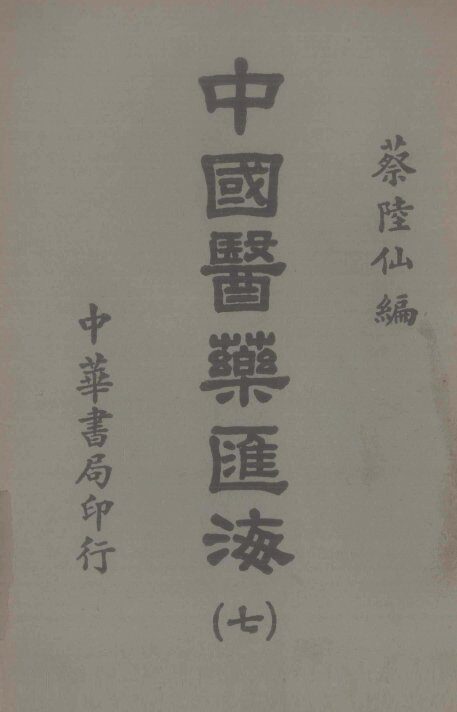 蔡陸仙編
中國醫藥匯海
(七)
中華書局印行